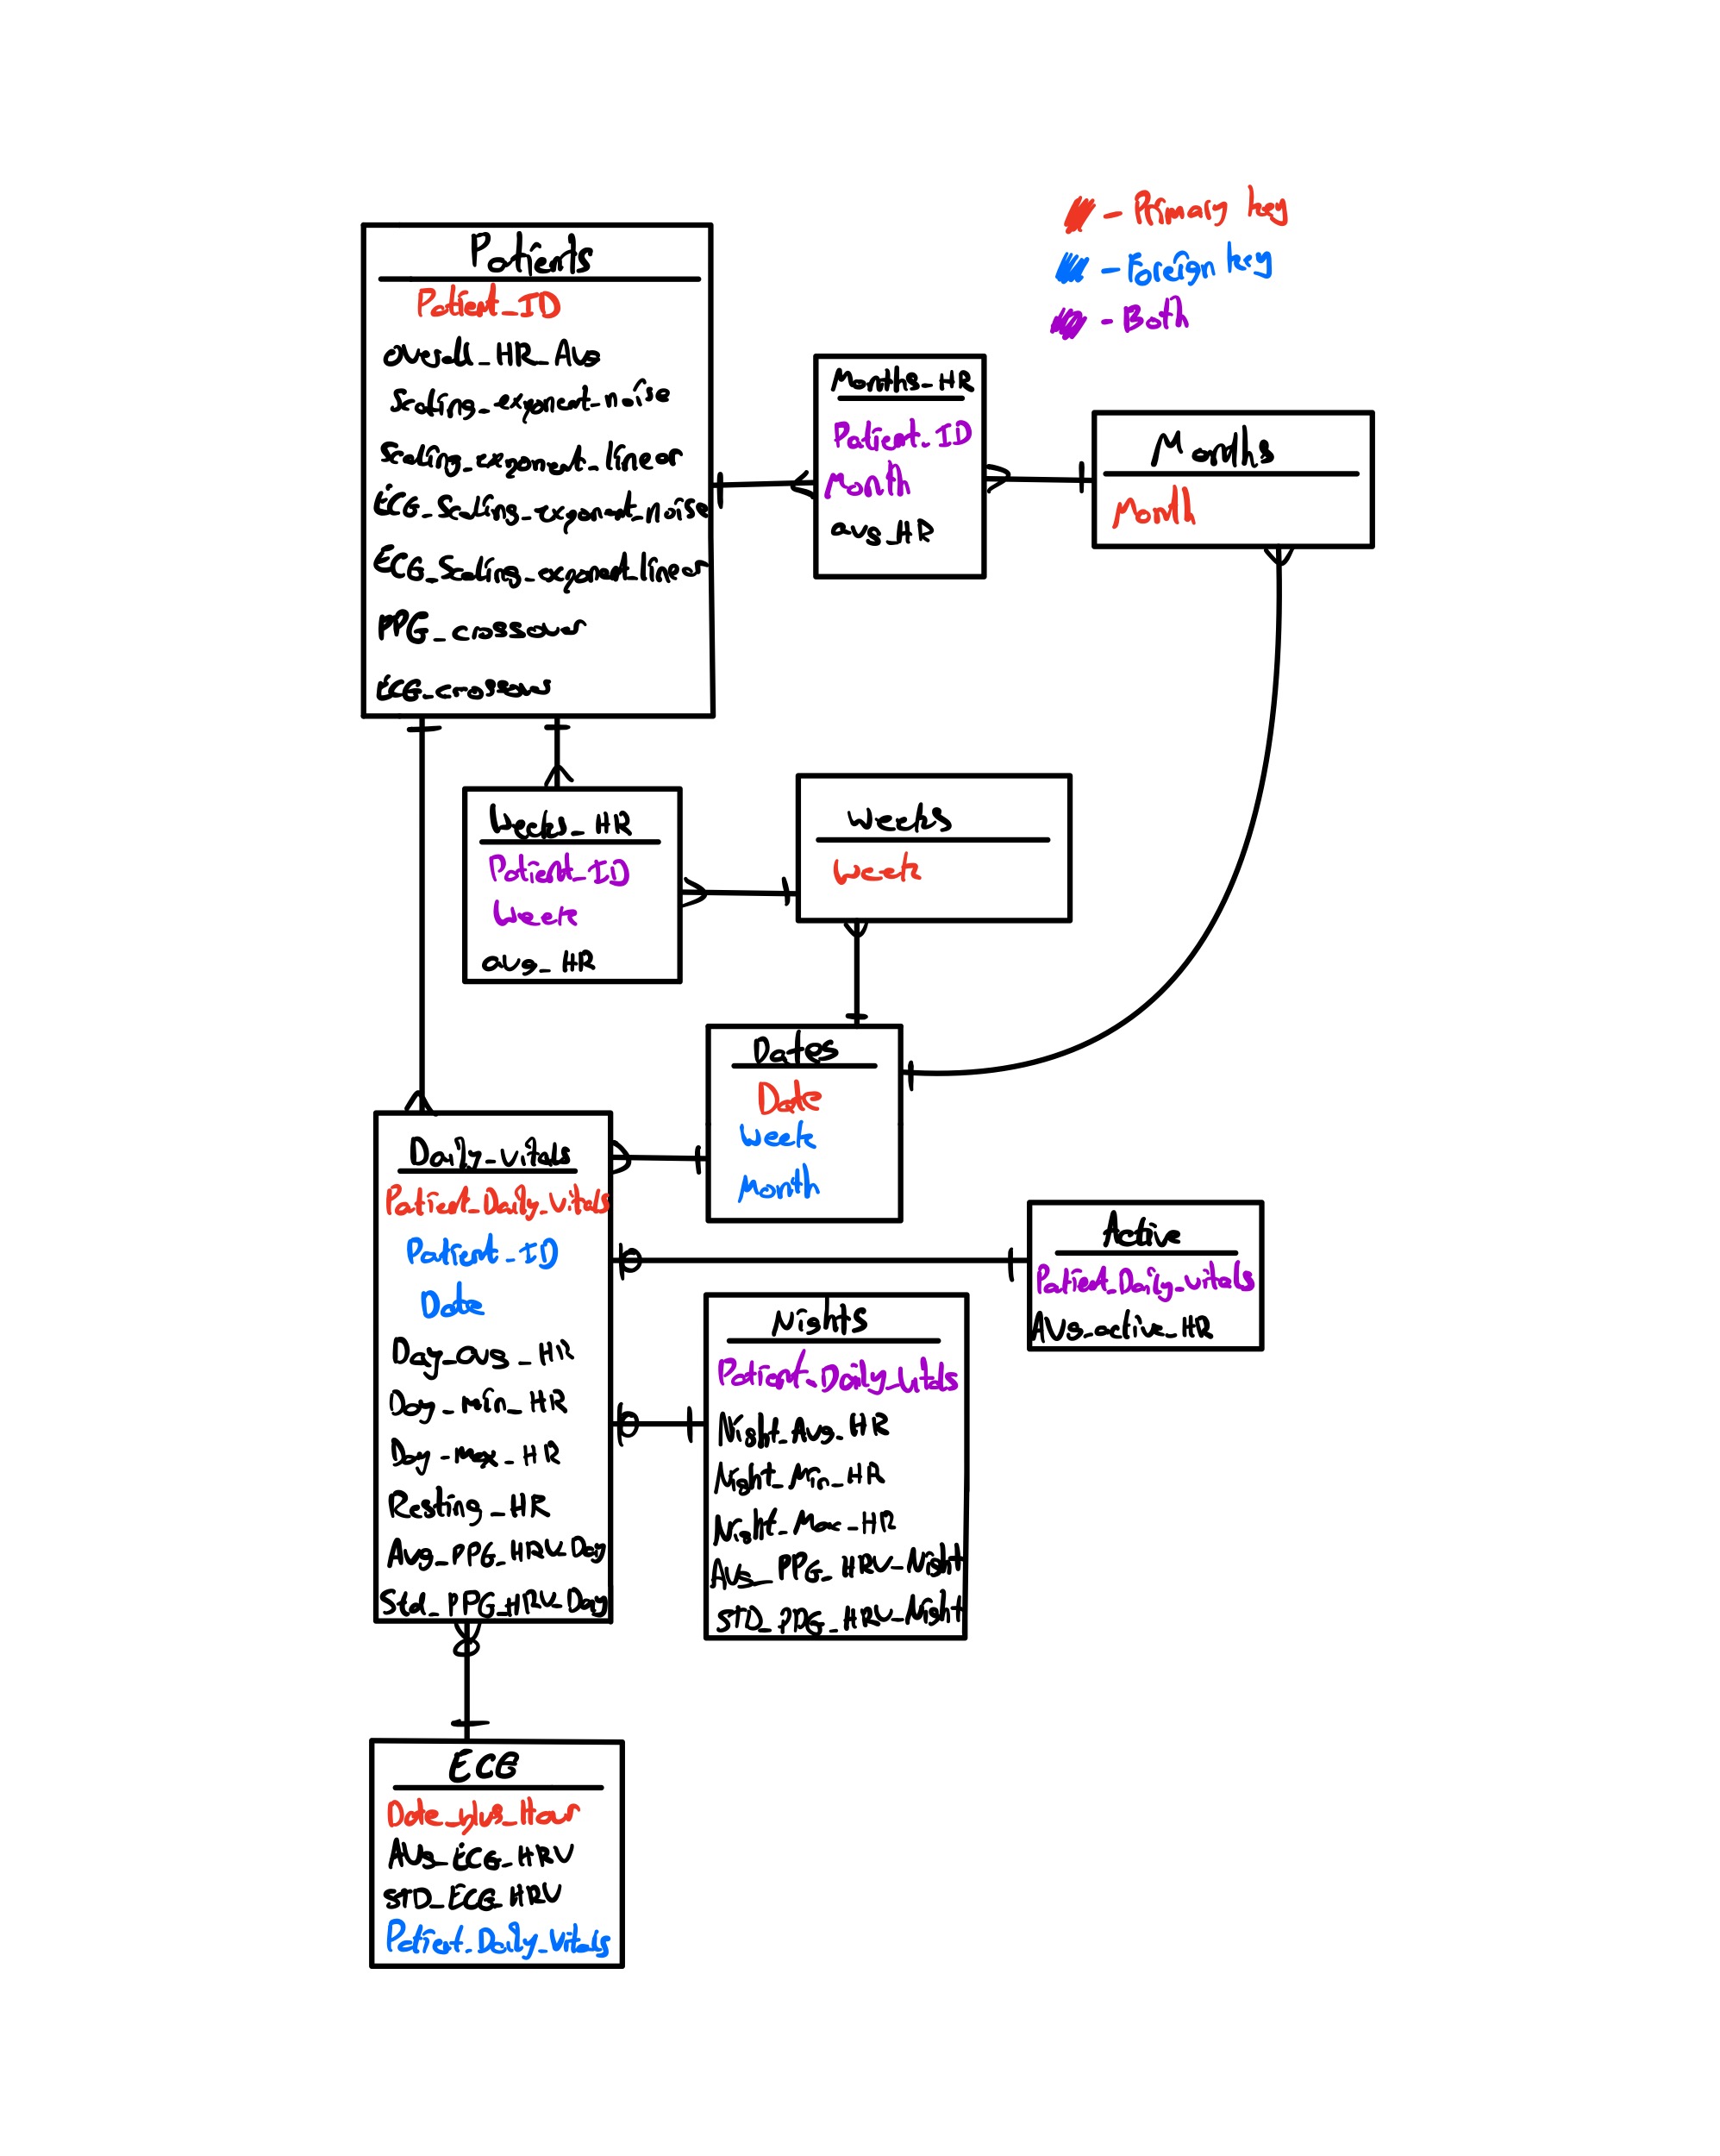 - Primary key
- Foreign key
- Both
Patients
Patient_ID
overall_HR_Avg
Scaling_exponent_noise
Scaling_exponent_linear
ECG_Scaling_exponent_noise
ECG_Scaling_exponent_linear
PPG_crossover
ECG_crossover
Months_HR
Patient_ID
Month
avg_HR
Months
Month
Weeks_HR
Patient_ID
Week
avg_HR
Weeks
Week
Dates
Date
Week
Month
Daily_vitals
Patient_Daily_Vitals
Patient_ID
Date
Day_avg_HR
Day_min_HR
Day_max_HR
Resting_HR
Avg_PPG_HRV_Day
Std_PPG_HRV_Day
Active
Patient_Daily_Vitals
Avg_active_HR
Nights
Patient_Daily_Vitals
Night_Avg_HR
Night_Min_HR
Night_Max_HR
Avg_PPG_HRV_Night
STD_PPG_HRV_Night
ECG
Date_plus_Hour
AVg_ECG_HRV
STD_ECG_HRV
Patient_Daily_Vitals